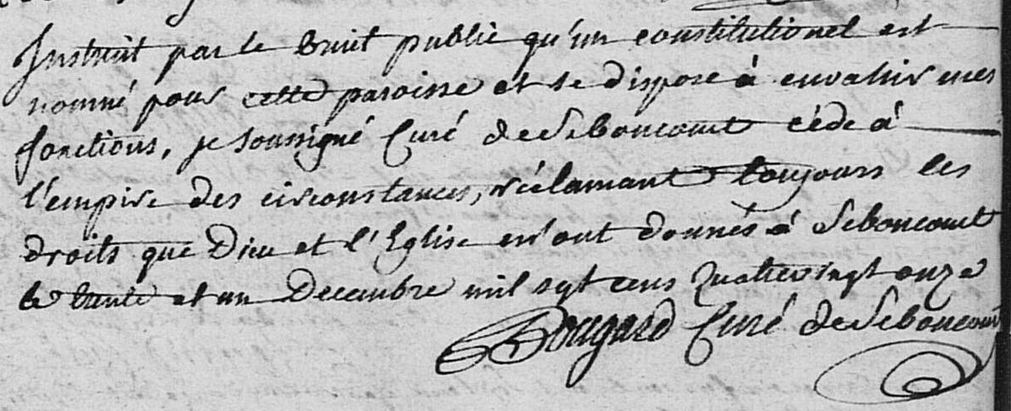 Instruit par le bruit public qu'un constitutionel est
nommé pour cette paroisse et se dispose à envahir mes
fonctions, je soussigné Curé de Seboncourt cède à
l'empire des circonstances, réclamant toujours les
droits que Dieu et l'Eglise m'ont donnés à Seboncourt
le trente et un Decembre mil sept cens quatre vingt onze
Bougard Curé de Seboncourt